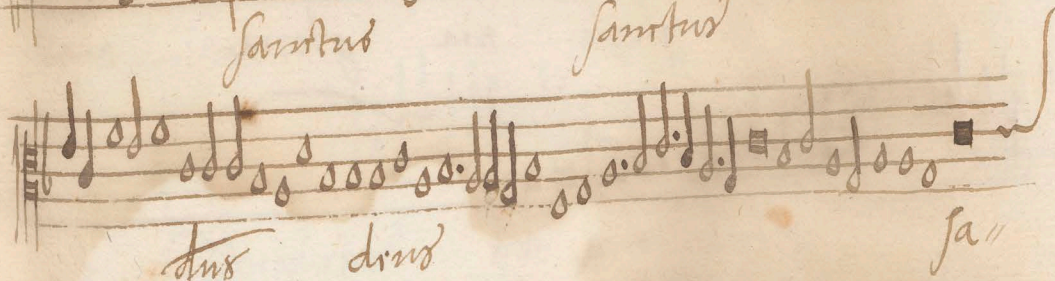 sanctus sanctus
dns deus sa〃